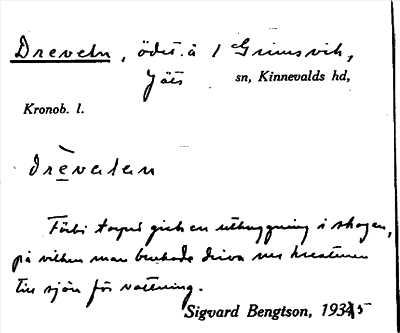 Dreveln, ödet. å 1 Grimsvik,
Jäts sn, Kinnevalds hd,
Kronob. l.
drèvalan
Förbi torpet gick en utbuggning i skogen,
på vilken man brukade driva ner kreaturen
till sjön för vattning.
Sigvard Bengtson, 1935